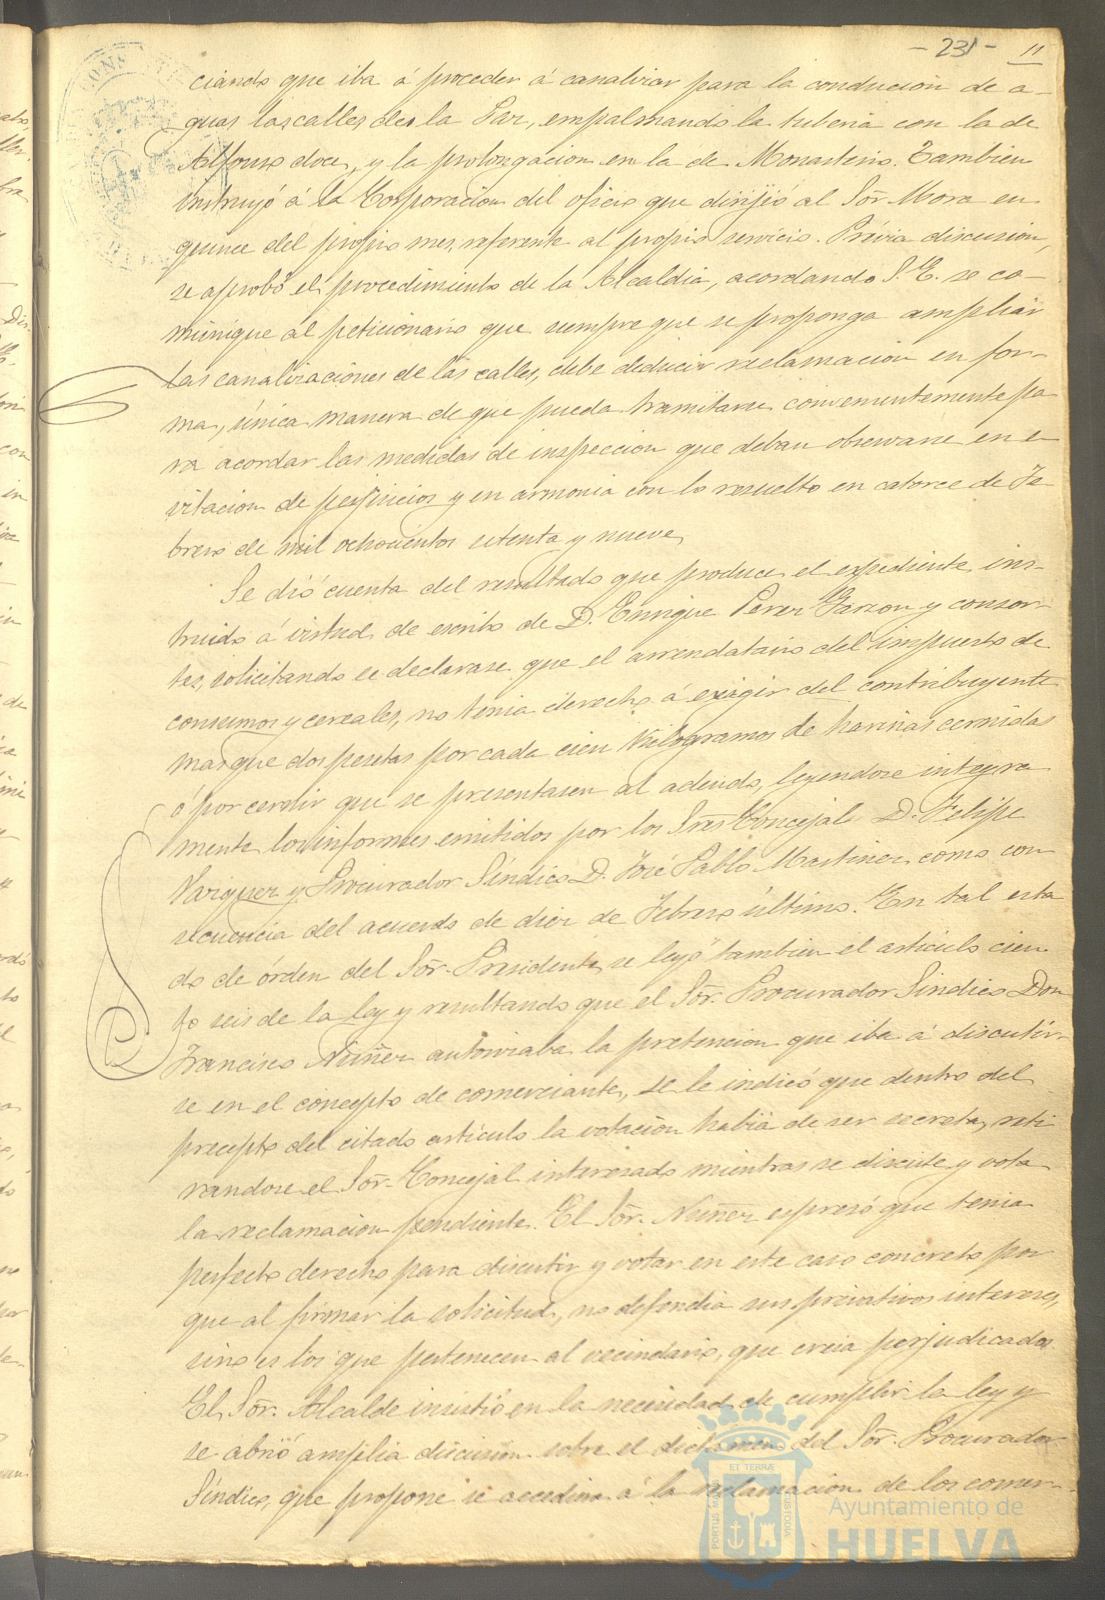 - 231 - 11
ciando que iba á proceder á canalizar para la conducion de a-
guas las calles de la Paz, empalmando la tuberia con la de
Alfonso doce, y la prolongacion en la de Monasterio. Tambien
instruyó á la Corporacion del oficio que dirijió al Sor. Mora en
quince del propio mes, referente al propio servicio. Prévia discusion,
se aprobó el procedimiento de la Alcaldia, acordando S. E. se co-
munique al peticionario que siempre que se proponga ampliar
las canalizaciones de las calles, debe deducir reclamacion en for-
ma, única manera de que pueda tramitarse convenientemente pa
ra acordar las medidas de inspeccion que deban observarse en e-
vitacion de perjuicios y en armonia con lo resuelto en catorce de Fe-
brero de mil ochocientos setenta y nueve.
Se dió cuenta del resultado que produce el expediente ins-
truido á virtud de escrito de D. Enrique Perez Garzon y consor-
tes, solicitando se declarase que el arrendatario del impuesto de
consumos y cereales, no tenia derecho á exigir del contribuyente
mas que dos pesetas por cada cien kilogramos de harinas cernidas
ó por cernir que se presentasen al adeudo, leyendose integra
mente los informes emitidos por los Sres Concejal D. Felipe
Vazquez y Procurador Síndico D. José Pablo Martinez, como con
secuencia del acuerdo de diez de Febrero último. En tal esta
do de órden del Sor. Presidente, se leyó tambien el artículo cien
to seis de la Ley y resultando que el Sor. Procurador Síndico Don
Francisco Nuñez autorizaba la pretencion que iba á discutir-
se en el concepto de comerciante, se le indicó que dentro del
precepto del citado artículo la votacion habia de ser secreta, reti
randose el Sor. Concejal interesado mientras se discute y vota
la reclamacion pendiente. El Sor. Nuñez expresó que tenia
perfecto derecho para discutir y votar en este caso concreto por
que al firmar la solicitud, no defendia sus privativos intereses,
sino es los que pertenecen al vecindario, que creia perjudicados
El Sor. Alcalde insistió en la necesidad de cumplir la ley y
se abrió amplia discusion sobre el dictamen del Sor. Procurador
Síndico, que propone se accediera á la reclamacion de los comer-
PORTUS MARIS ET TERRÆ CUSTODIA
Ayuntamiento de
HUELVA